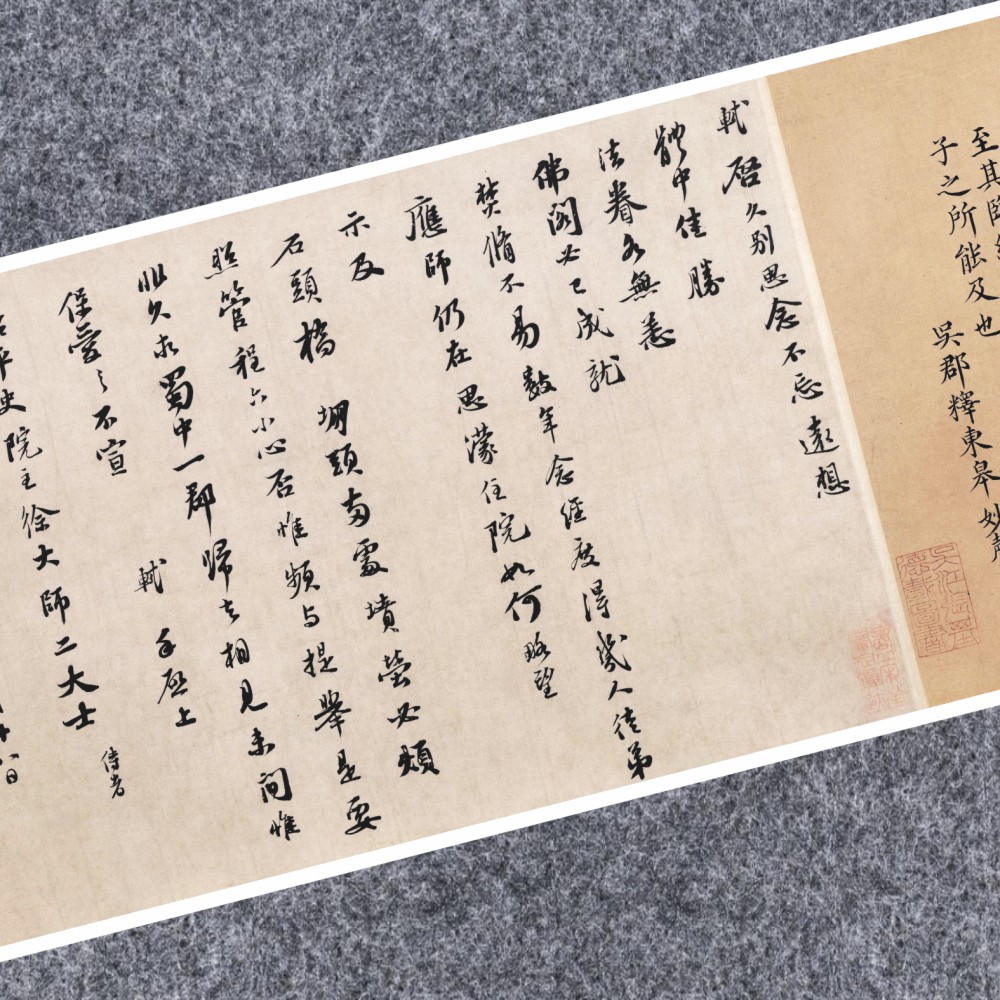 至其
子之所能及也 吳郡釋東皋妙聲
軾啓久别思念不忘遠想
體中佳勝
法眷各無恙
佛閣必已成就
焚脩不易數年念經度得幾人徒弟
應師仍在思濛住院如何略望
示及
石頭橋堋頭兩處墳塋必煩
照管程六小心否惟頻与提舉是要
非久求蜀中一郡歸去相見未間惟
保愛之不宣
軾手啓上
平史院主徐大師二大士侍者
十八日